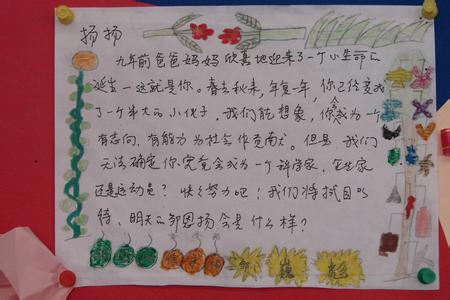 扬扬
九年前爸爸妈妈欣喜地迎来了一个小生命的
诞生—这就是你。春去秋来，年复一年，你已经变成
了一个半大的小伙子，我们能想象，你会成为一个
有志向，有能力为社会作贡献的人。但是，我们
无法确定你究竟会成为一个科学家，艺术家
还是运动员？快快努力吧！我们将拭目以
待、明天的邹恩扬会是什么样？
邹 巍